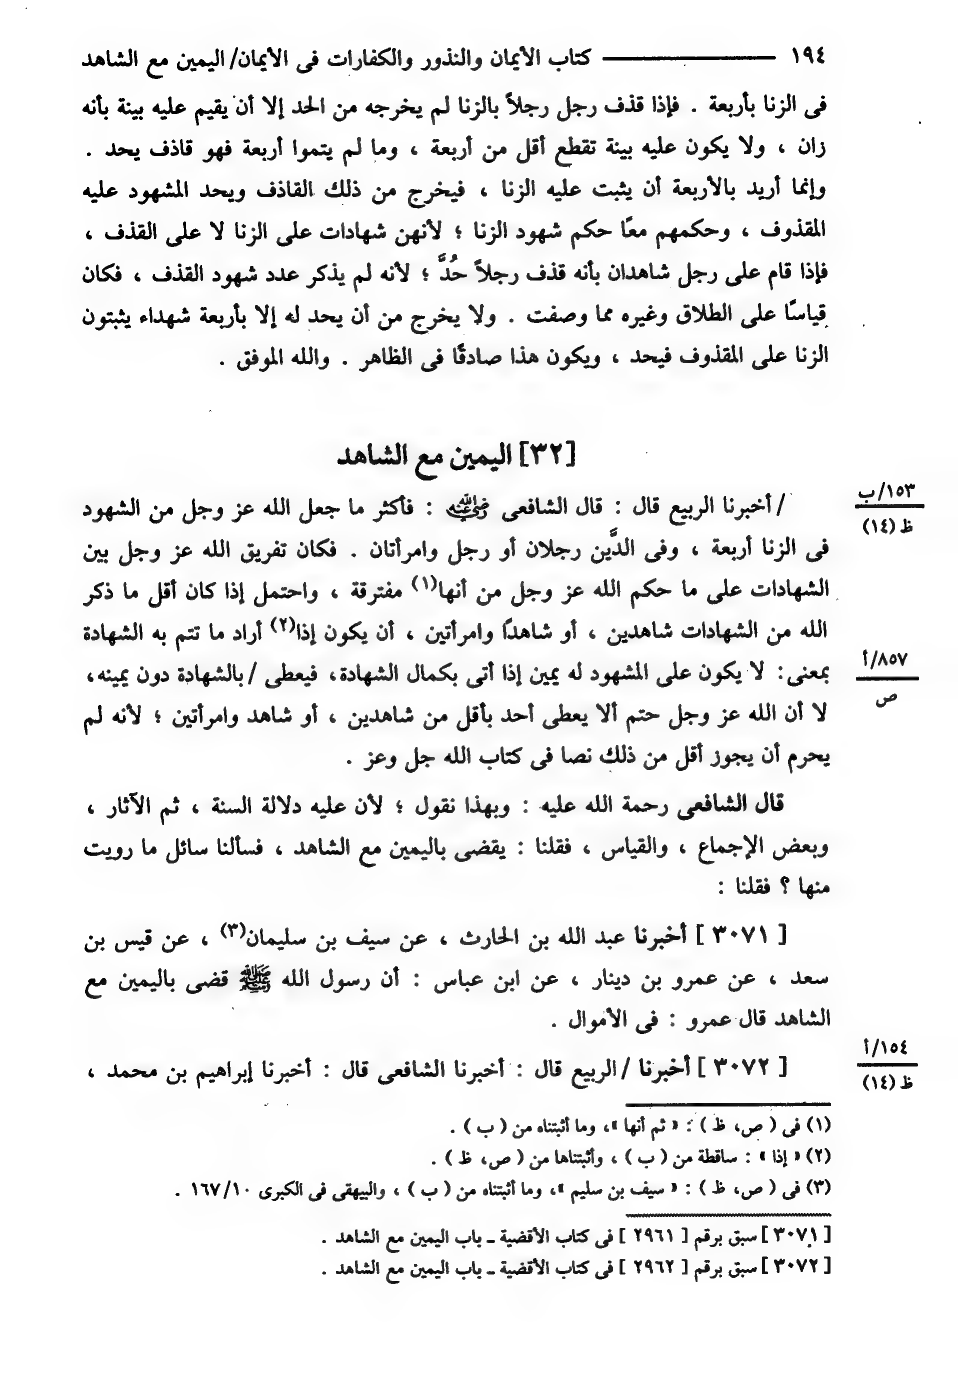 ١٩٤ ــــــــــــــ كتاب الأيمان والنذور والكفارات فى الأيمان/ اليمين مع الشاهد
فى الزنا بأربعة . فإذا قذف رجل رجلاً بالزنا لم يخرجه من الحد إلا أن يقيم عليه بينة بأنه
زان ، ولا يكون عليه بينة تقطع أقل من أربعة ، وما لم يتموا أربعة فهو قاذف يحد .
وإنما أريد بالأربعة أن يثبت عليه الزنا ، فيخرج من ذلك القاذف ويحد المشهود عليه
المقذوف ، وحكمهم معًا حكم شهود الزنا ؛ لأنهن شهادات على الزنا لا على القذف ،
فإذا قام على رجل شاهدان بأنه قذف رجلاً حُدَّ ؛ لأنه لم يذكر عدد شهود القذف ، فكان
قياسًا على الطلاق وغيره مما وصفت . ولا يخرج من أن يحد له إلا بأربعة شهداء يثبتون
الزنا على المقذوف فيحد ، ويكون هذا صادقًا فى الظاهر . والله الموفق .
[٣٢] اليمين مع الشاهد
/ أخبرنا الربيع قال : قال الشافعى رضي الله عنه : فأكثر ما جعل الله عز وجل من الشهود
١٥٣/ب
ظ (١٤)
فى الزنا أربعة ، وفى الدَّين رجلان أو رجل وامرأتان . فكان تفريق الله عز وجل بين
الشهادات على ما حكم الله عز وجل من أنها(١) مفترقة ، واحتمل إذا كان أقل ما ذكر
الله من الشهادات شاهدين ، أو شاهدًا وامرأتين ، أن يكون إذا(٢) أراد ما تتم به الشهادة
بمعنى : لا يكون على المشهود له يمين إذا أتى بكمال الشهادة، فيعطى / بالشهادة دون يمينه،
٨٥٧/أ
ص
لا أن الله عز وجل حتم ألا يعطى أحد بأقل من شاهدين ، أو شاهد وامرأتين ؛ لأنه لم
يحرم أن يجوز أقل من ذلك نصا فى كتاب الله جل وعز .
قال الشافعى رحمة الله عليه : وبهذا نقول ؛ لأن عليه دلالة السنة ، ثم الآثار ،
وبعض الإجماع ، والقياس ، فقلنا : يقضى باليمين مع الشاهد ، فسألنا سائل ما رويت
منها ؟ فقلنا :
[ ٣٠٧١ ] أخبرنا عبد الله بن الحارث ، عن سيف بن سليمان(٣) ، عن قيس بن
سعد ، عن عمرو بن دينار ، عن ابن عباس : أن رسول الله ﷺ قضى باليمين مع
الشاهد قال عمرو : فى الأموال .
[ ٣٠٧٢ ] أخبرنا / الربيع قال : أخبرنا الشافعى قال : أخبرنا إبراهيم بن محمد ،
١٥٤/أ
ظ (١٤)
(١) فى ( ص، ظ ) : « ثم أنها »، وما أثبتناه من ( ب ) .
(٢) « إذا » : ساقطة من ( ب ) ، وأثبتناها من ( ص، ظ ) .
(٣) فى ( ص، ظ ) : « سيف بن سليم »، وما أثبتناه من ( ب ) ، والبيهقى فى الكبرى ١٠/ ١٦٧ .
[ ٣٠٧١ ] سبق برقم [ ٢٩٦١ ] فى كتاب الأقضية ـ باب اليمين مع الشاهد .
[ ٣٠٧٢ ] سبق برقم [ ٢٩٦٢ ] فى كتاب الأقضية ـ باب اليمين مع الشاهد .